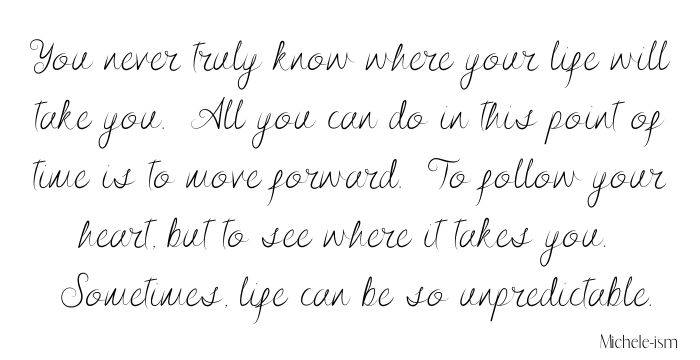 You never truly know where your life will
take you.  All you can do in this point of
time is to move forward.  To follow your
heart, but to see where it takes you.
Sometimes, life can be so unpredictable.
Michele-ism